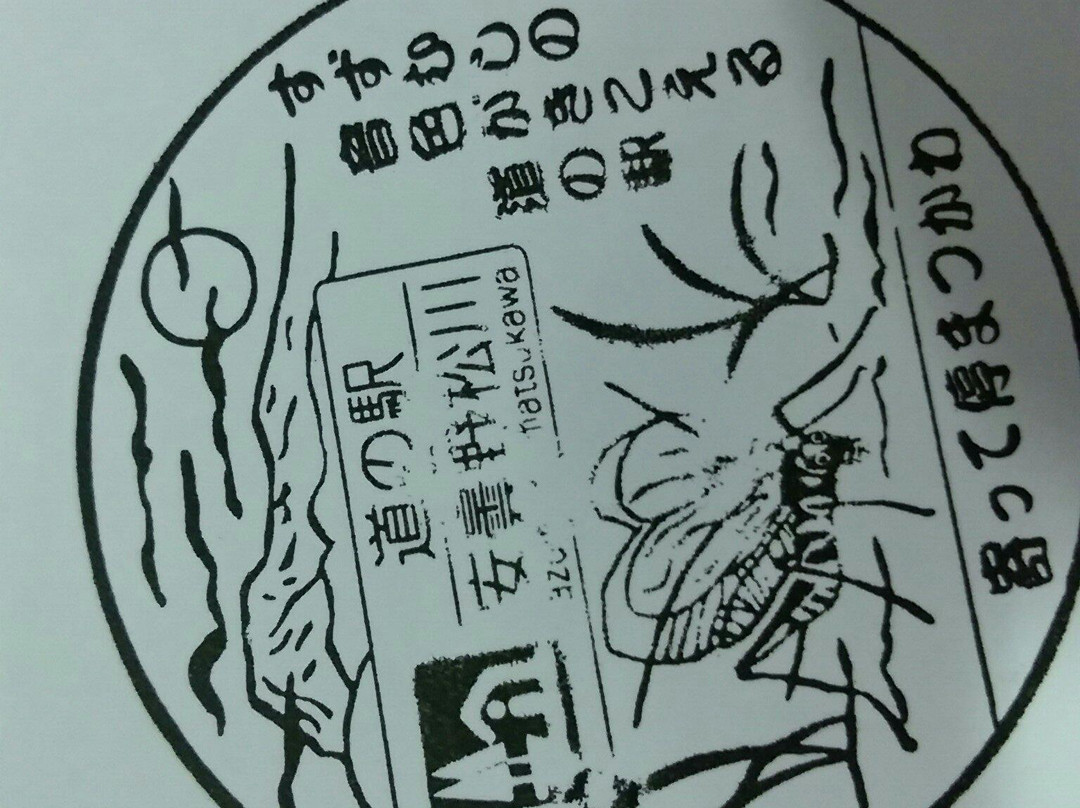 すずむしの
音色がきこえる
道の駅
道の駅
安曇野松川
matsukawa
寄って停まつかわ